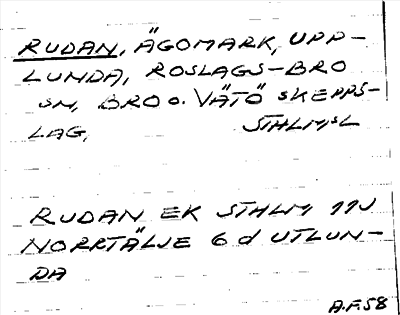 RUDAN, ÄGOMARK, UPP-
LUNDA, ROSLAGS-BRO
SN, BRO O. VÄTÖ SKEPPS-
LAG, STHLMSL
RUDAN EK STHLM 11J
NORRTÄLJE 6 d UTLUN-
DA
A.F.58